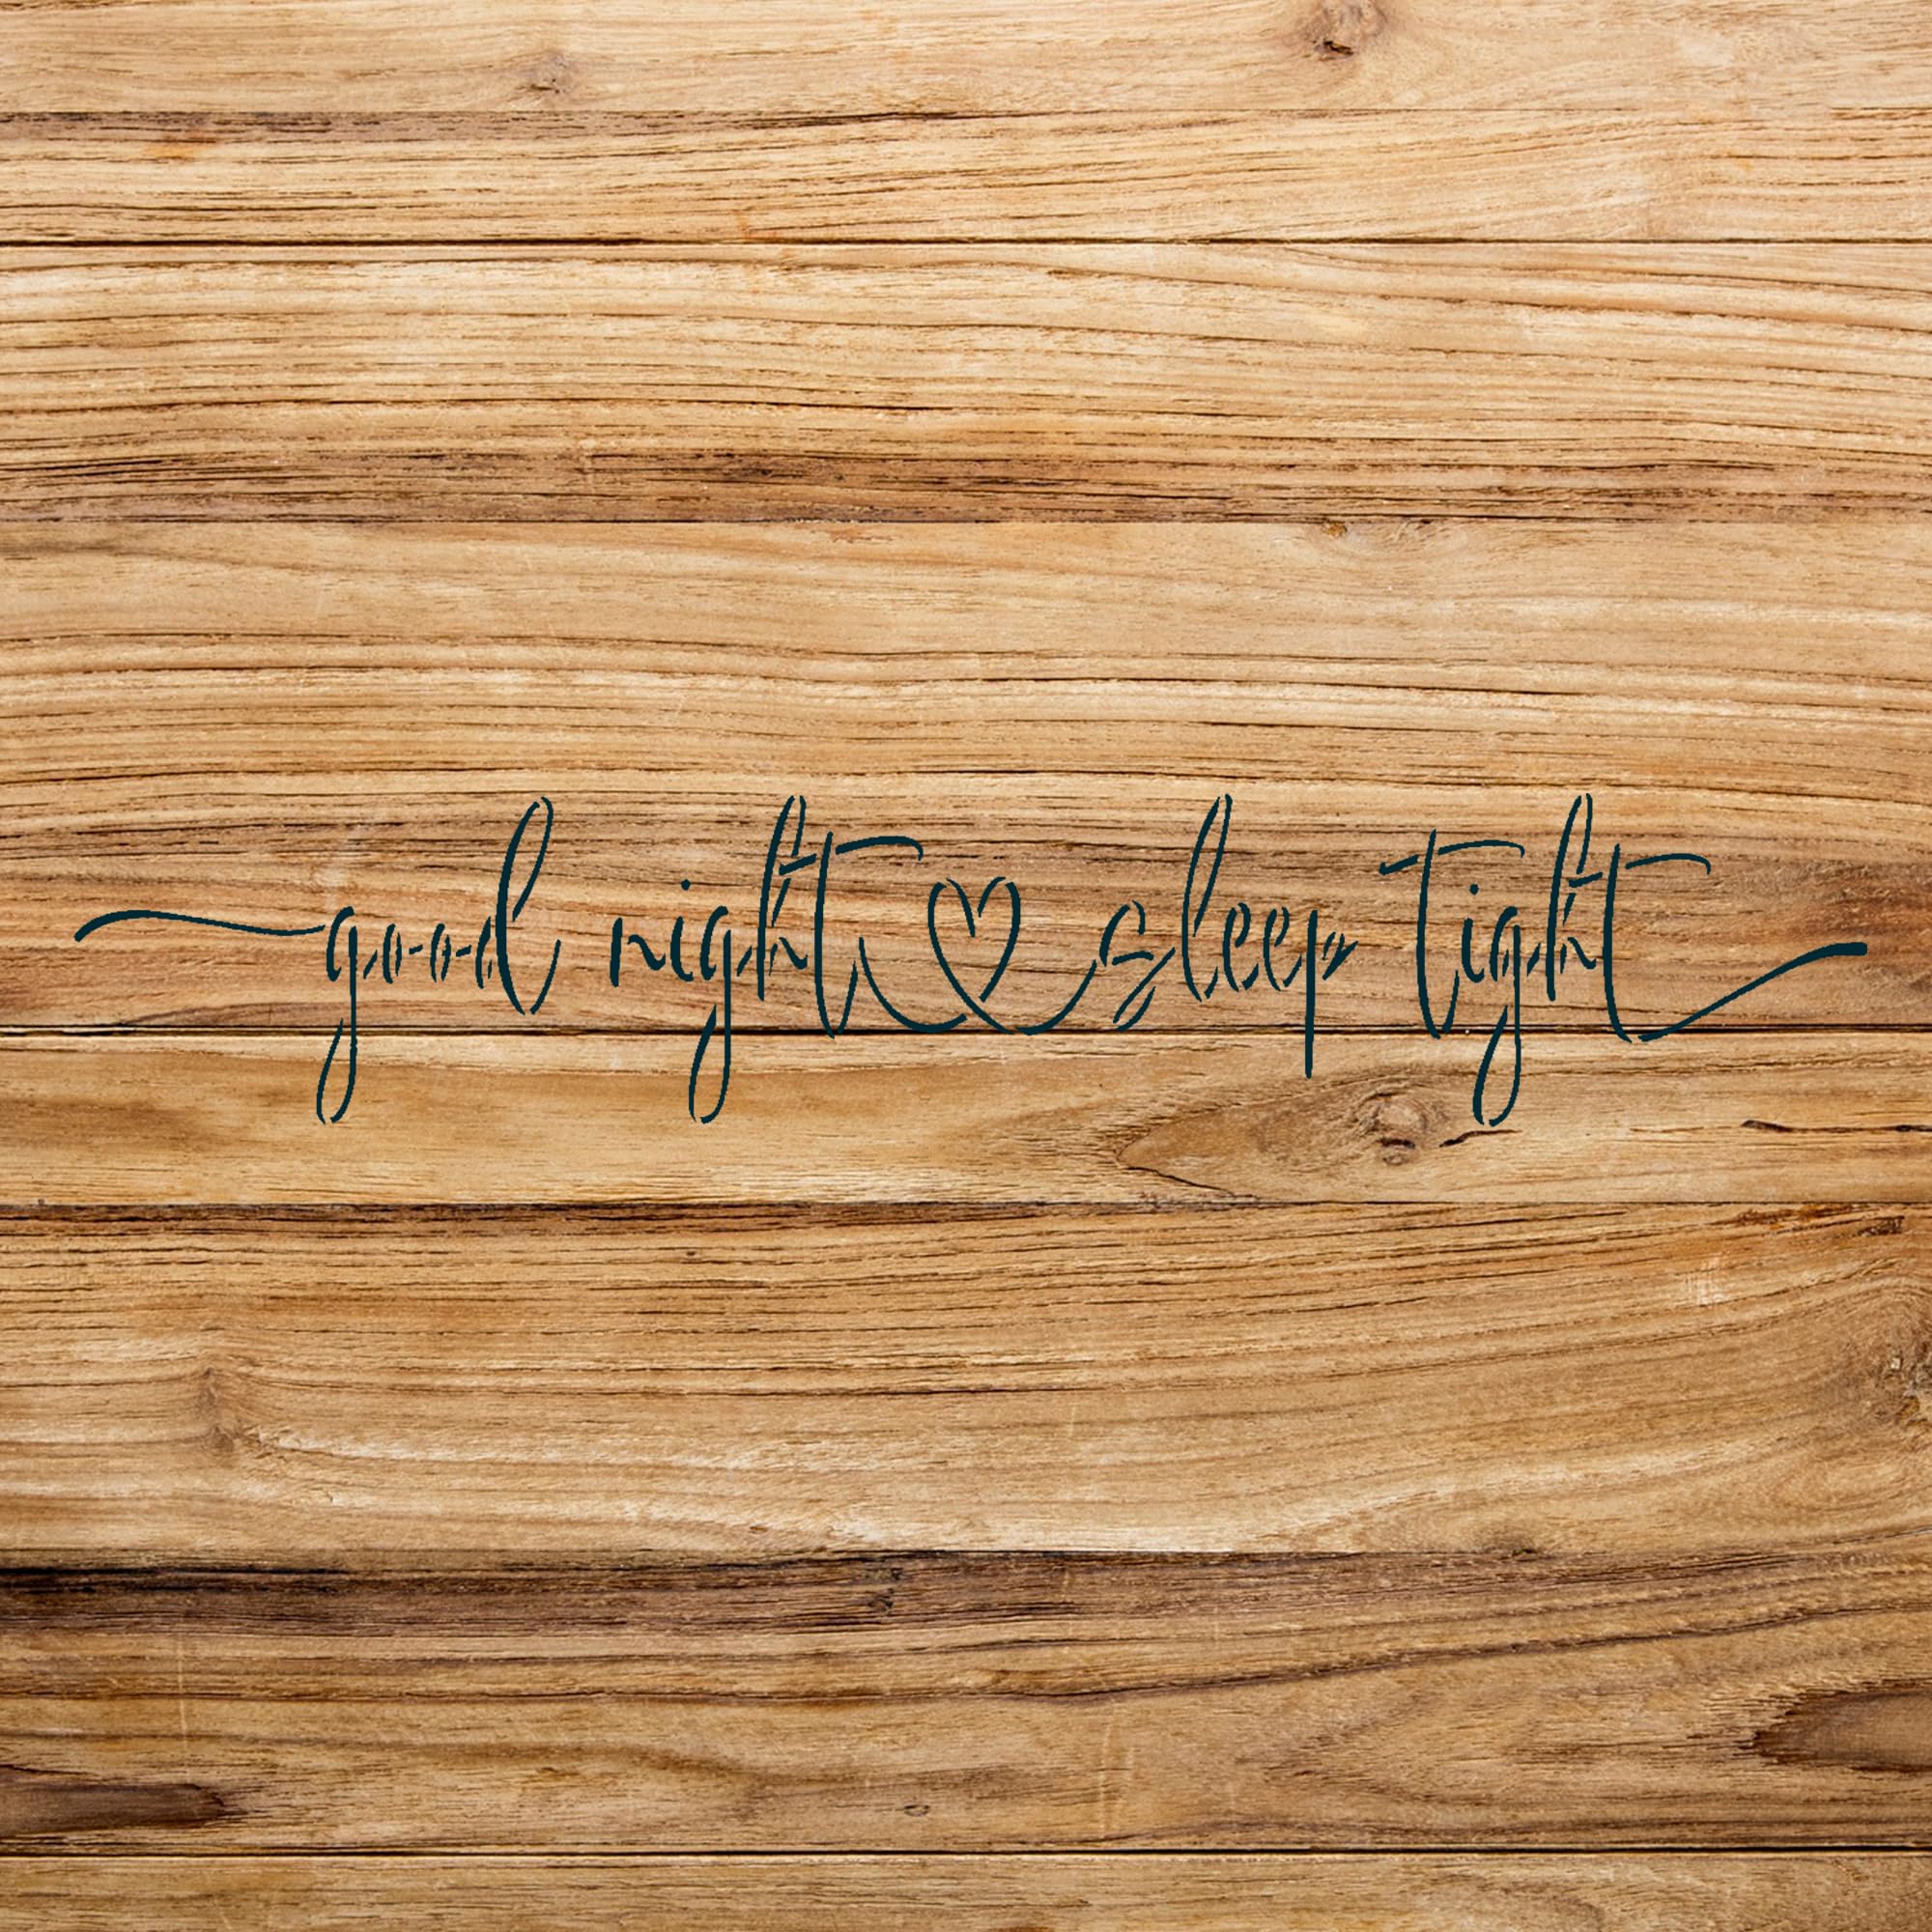 good night sleep tight